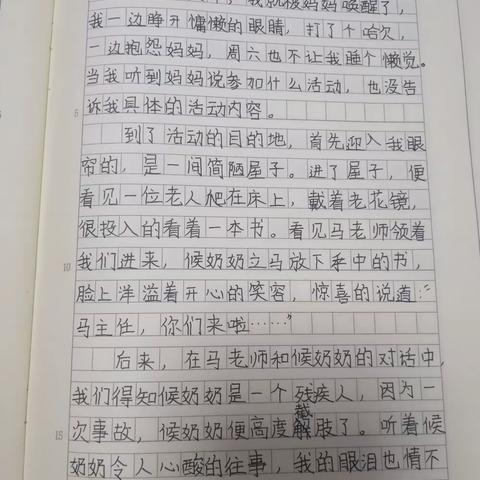 我就被妈妈唤醒了，
我一边睁开慵懒的眼睛，打了个哈欠，
一边抱怨妈妈，周六也不让我睡个懒觉。
当我听到妈妈说参加什么活动，也没告
5 诉我具体的活动内容。
到了活动的目的地，首先迎入我眼
帘的，是一间简陋屋子。进了屋子，便
看见一位老人爬在床上，戴着老花镜，
很投入的看着一本书。看见马老师领着
10 我们进来，候奶奶立马放下手中的书，
脸上洋溢着开心的笑容，惊喜的说道：“
马主任，你们来啦……”
后来，在马老师和候奶奶的对话中，
我们得知候奶奶是一个残疾人，因为一
15 次事故，候奶奶便高度截肢了。听着候
奶奶令人心酸的往事，我的眼泪也情不